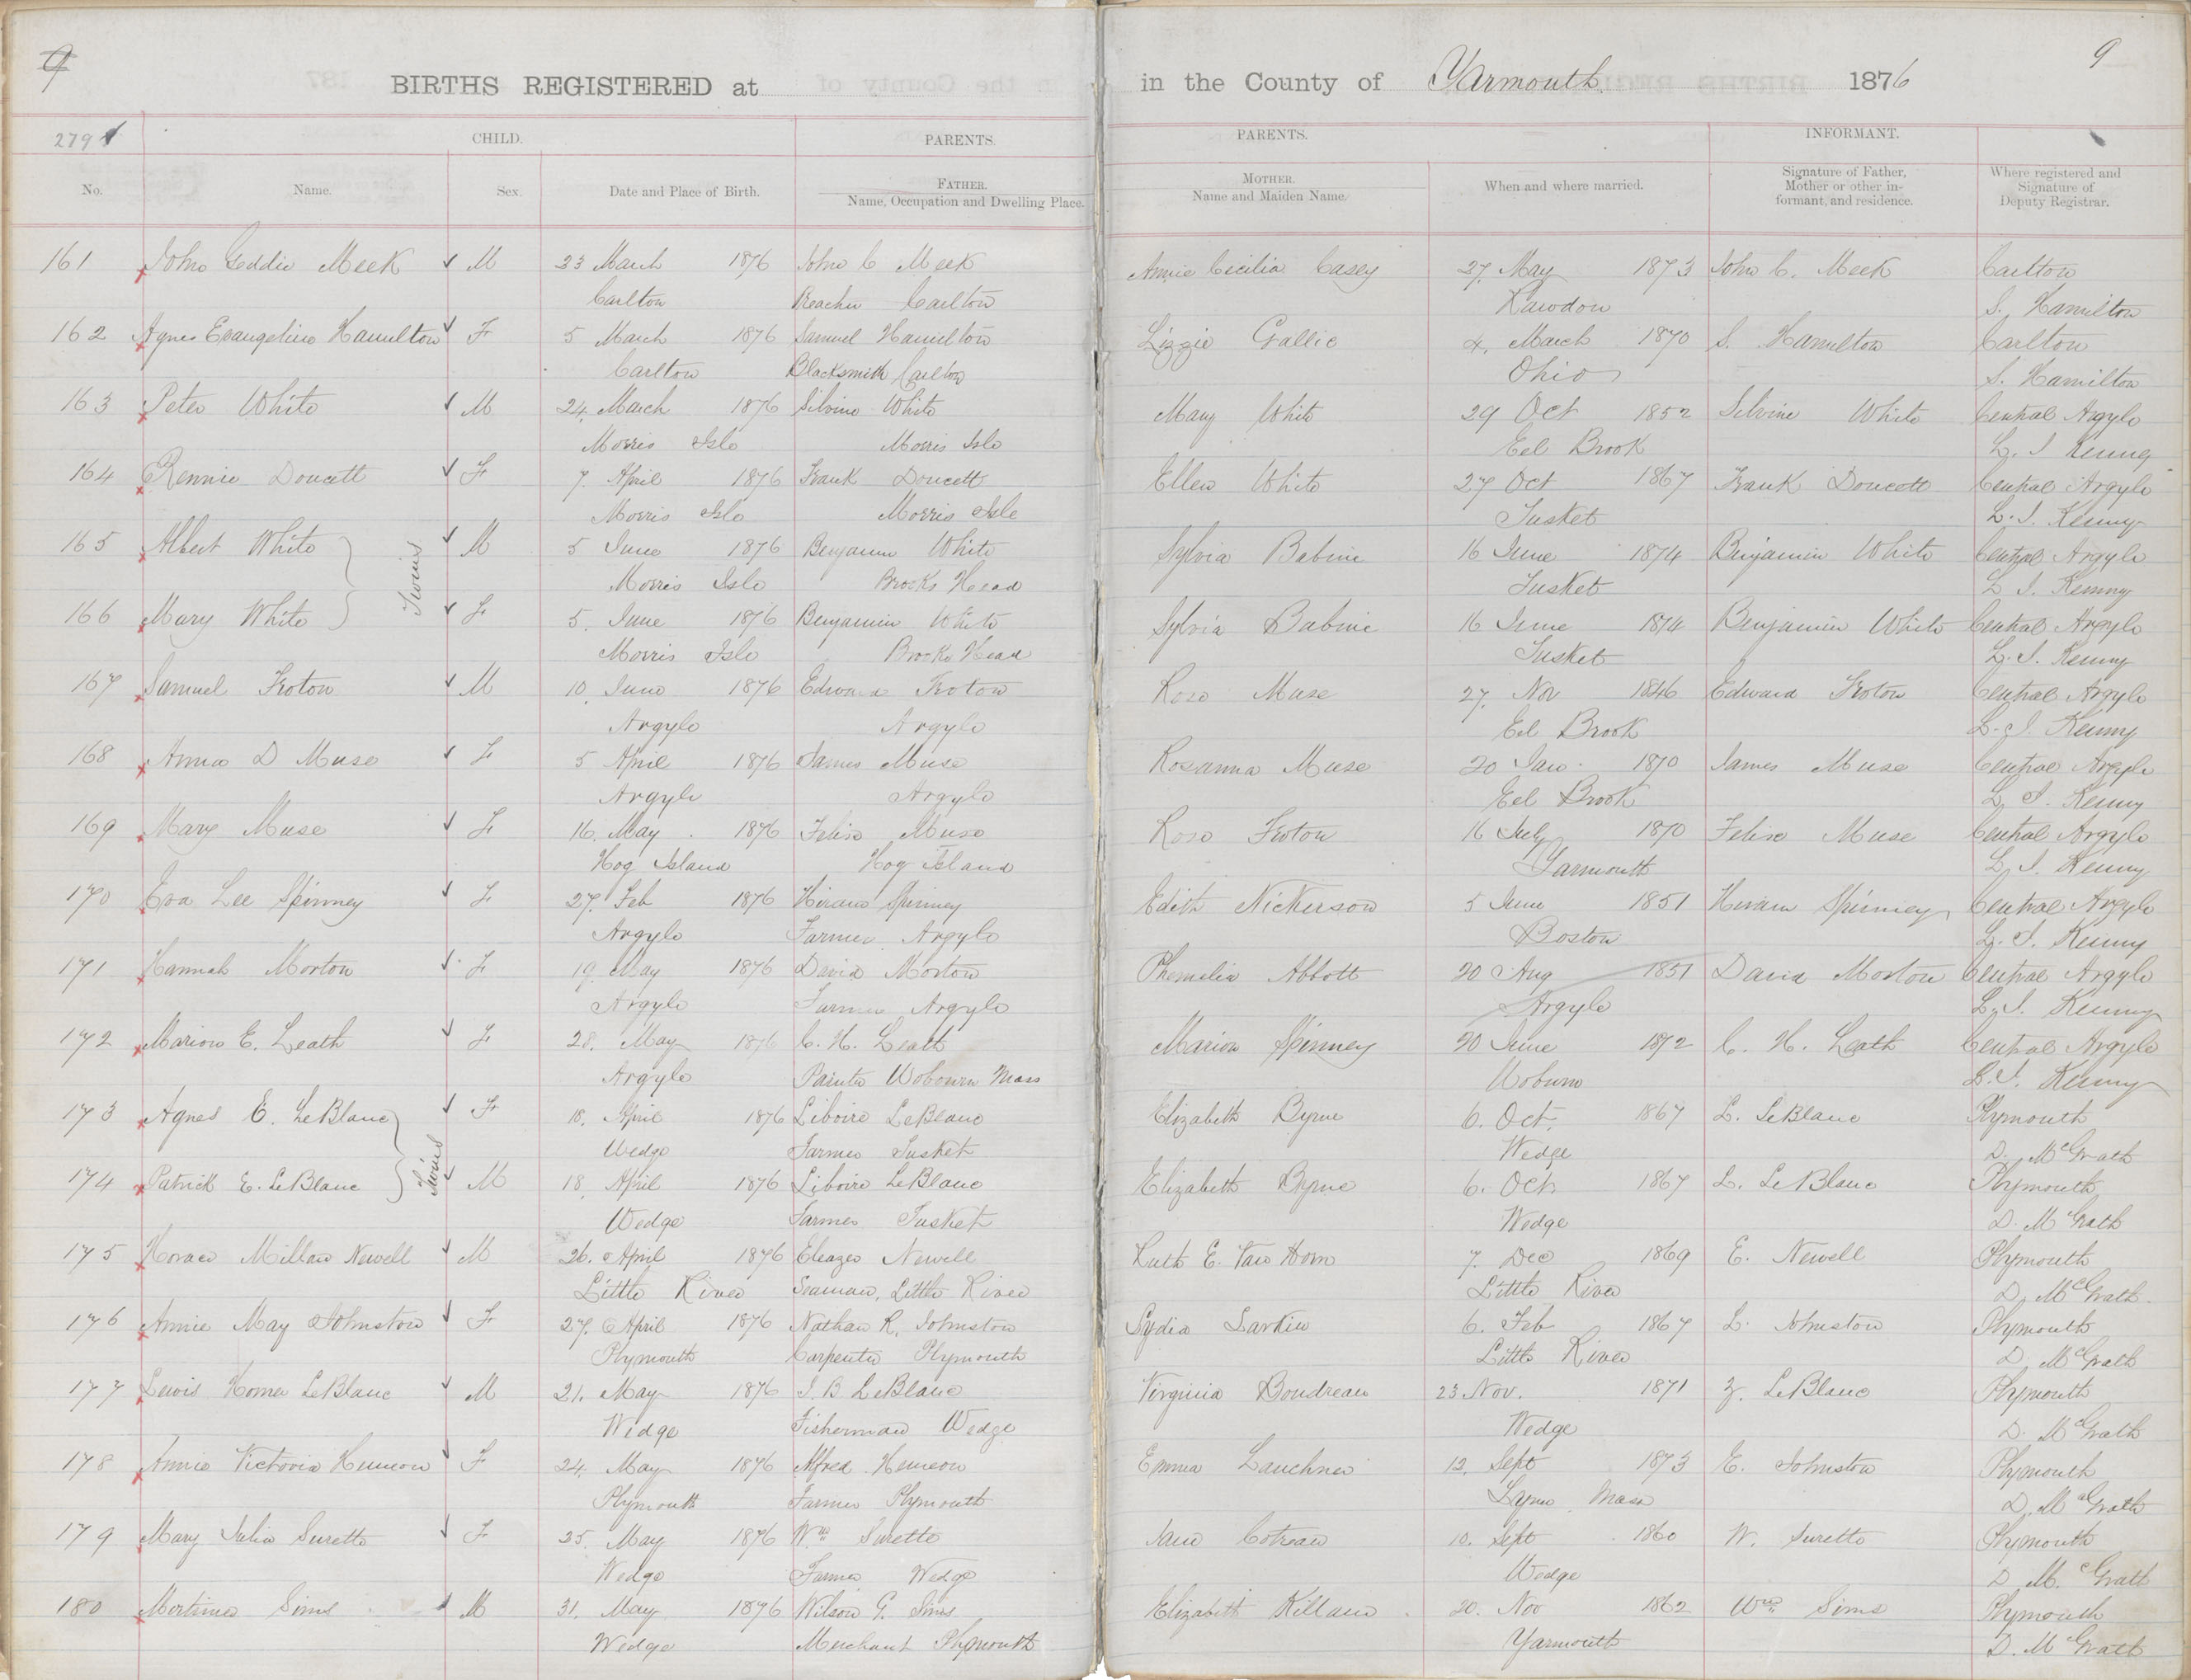 9
BIRTHS REGISTERED at
in the County of Yarmouth 1876
9
279
CHILD. PARENTS.
PARENTS. INFORMANT.
No. Name. Sex. Date and Place of Birth. FATHER. Name, Occupation and Dwelling Place.
MOTHER. Name and Maiden Name. When and where married. Signature of Father, Mother or other informant, and residence. Where registered and Signature of Deputy Registrar.
161 John Geddie Meek M 23 March 1876 John C Meek Annie Cecilia Casey 27. May 1873 John C. Meek Carlton
Carlton Carlton Rawdon S. Hamilton
162 Agnes Evangeline Hamilton F 5 March 1876 Samuel Hamilton Lizzie Gallie 4. March 1870 S. Hamilton Carlton
Carlton Blacksmith Carlton Ohio S. Hamilton
163 Peter White M 24. March 1876 Silvine White Mary White 29 Oct 1852 Silvine White Central Argyle
Morris Isle Morris Isle Eel Brook L. S Kenney
164 Rennie Doucett F 7 April 1876 Frank Doucett Ellen White 27 Oct 1867 Frank Doucett Central Argyle
Morris Isle Morris Isle Tusket L. S. Kenney
165 Albert White Twins M 5 June 1876 Benjamin White Sylvia Babine 16 June 1874 Benjamin White Central Argyle
Morris Isle Brooks Head Tusket L S. Kenney
166 Mary White F 5. June 1876 Benjamin White Sylvia Babine 16 June 1874 Benjamin White Central Argyle
Morris Isle Brooks Head Tusket L. S. Kenney
167 Samuel Froton M 10. June 1876 Edward Froton Rose Muse 27. Nov 1846 Edward Froton Central Argyle
Argyle Argyle Eel Brook L. S. Kenney
168 Anna D Muse F 5 April 1876 James Muse Rosanna Muse 20 Jan. 1870 James Muse Central Argyle
Argyle Argyle Eel Brook L. S. Kenney
169 Mary Muse F 16. May 1876 Felise Muse Rose Froton 16 July 1870 Felise Muse Central Argyle
Hog Island Hog Island Yarmouth L. S. Kenney
170 Eva Lee Spinney F 27. Feb 1876 Hiram Spinney Edith Nickerson 5 June 1851 Hiram Spinney Central Argyle
Argyle Farmer Argyle Boston L. S. Kenney
171 Hannah Morton F 19. May 1876 David Morton Phemelia Abbott 20 Aug 1851 David Morton Central Argyle
Argyle Farmer Argyle Argyle L. S. Kenney
172 Marion E. Leath F 28. May 1876 C. H. Leath Marion Spinney 20 June 1872 C. H. Leath Central Argyle
Argyle Painter Wobourn Mass Woburn L. S. Kenney
173 Agnes E. LeBlanc Twins F 18. April 1876 Liboire LeBlanc Elizabeth Byrne 6. Oct. 1867 L. LeBlanc Plymouth
Wedge Farmer Tusket Wedge D. McGrath
174 Patrick E. LeBlanc M 18. April 1876 Liboire LeBlanc Elizabeth Byrne 6. Oct. 1867 L. LeBlanc Plymouth
Wedge Farmer Tusket Wedge D. McGrath
175 Horace Millan Newell M 26. April 1876 Eleazer Newell Ruth E. Van Horn 7. Dec 1869 E. Newell Plymouth
Little River Seaman, Little River Little River D. McGrath.
176 Annie May Johnston F 27. April 1876 Nathan R. Johnston Lydia Larkin 6. Feb 1867 L. Johnston Plymouth
Plymouth Carpenter Plymouth Little River D. McGrath
177 Lewis Homer LeBlanc M 21. May 1876 J. B LeBlanc Virginia Boudreau 23 Nov. 1871 Z. LeBlanc Plymouth
Wedge Fisherman Wedge Wedge D. McGrath
178 Annie Victoria Hemeon F 24. May 1876 Alfred Hemeon Emma Lauchner 12. Sept 1873 E. Johnston Plymouth
Plymouth Farmer Plymouth Lynn Mass D. McGrath
179 Mary Julia Surette F 25. May 1876 Wm Surette Jane Cotreau 10. Sept 1860 W. Surette Plymouth
Wedge Farmer Wedge Wedge D. McGrath
180 Mortimer Sims M 31. May 1876 Wilson G. Sims Elizabeth Killam 20. Nov 1862 Wm Sims Plymouth
Wedge Merchant Plymouth Yarmouth D. McGrath